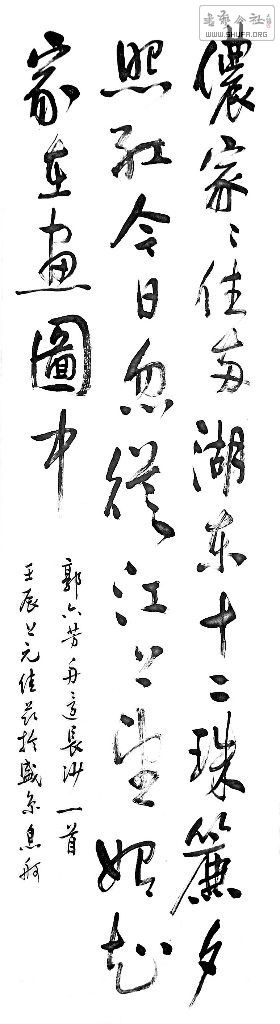 书法公社
WWW.SHUFA.ORG
儂家〻住兩湖東十二珠簾夕
照紅今日忽從江上望始知
家在畫圖中
郭六芳舟還長沙一首
壬辰上元佳於盛京